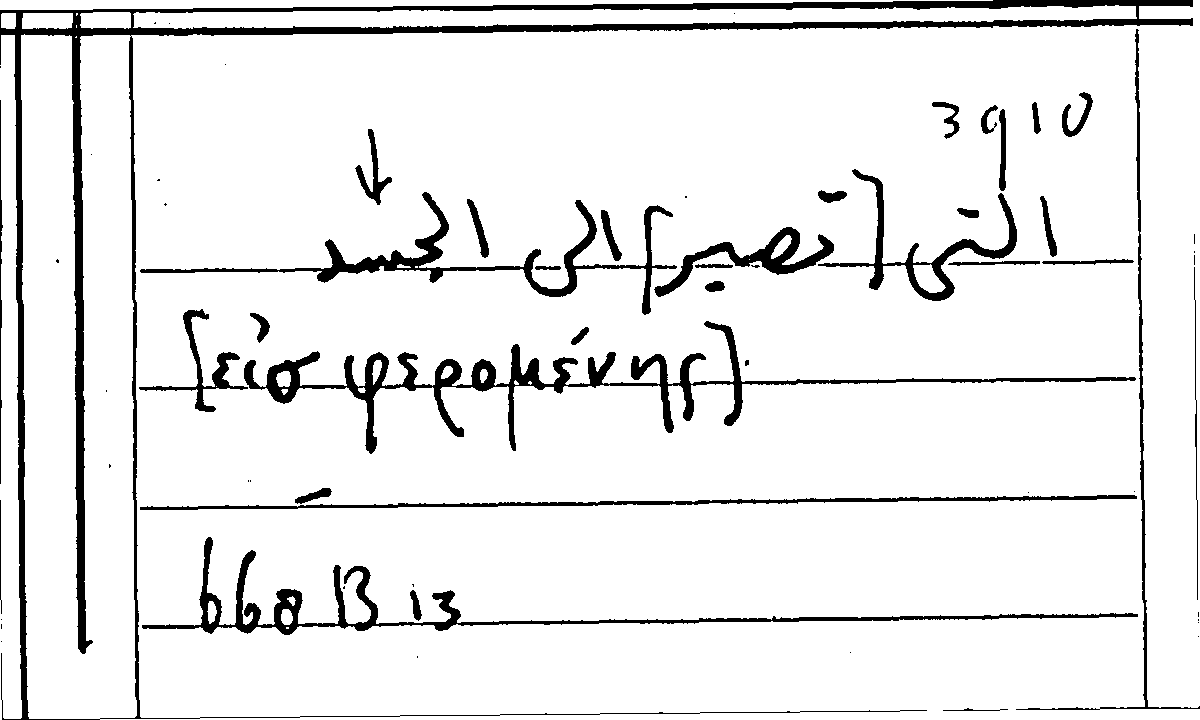 3910
التى [تصير] الى الجسد
[εἰσφερομένης]
668 B 13